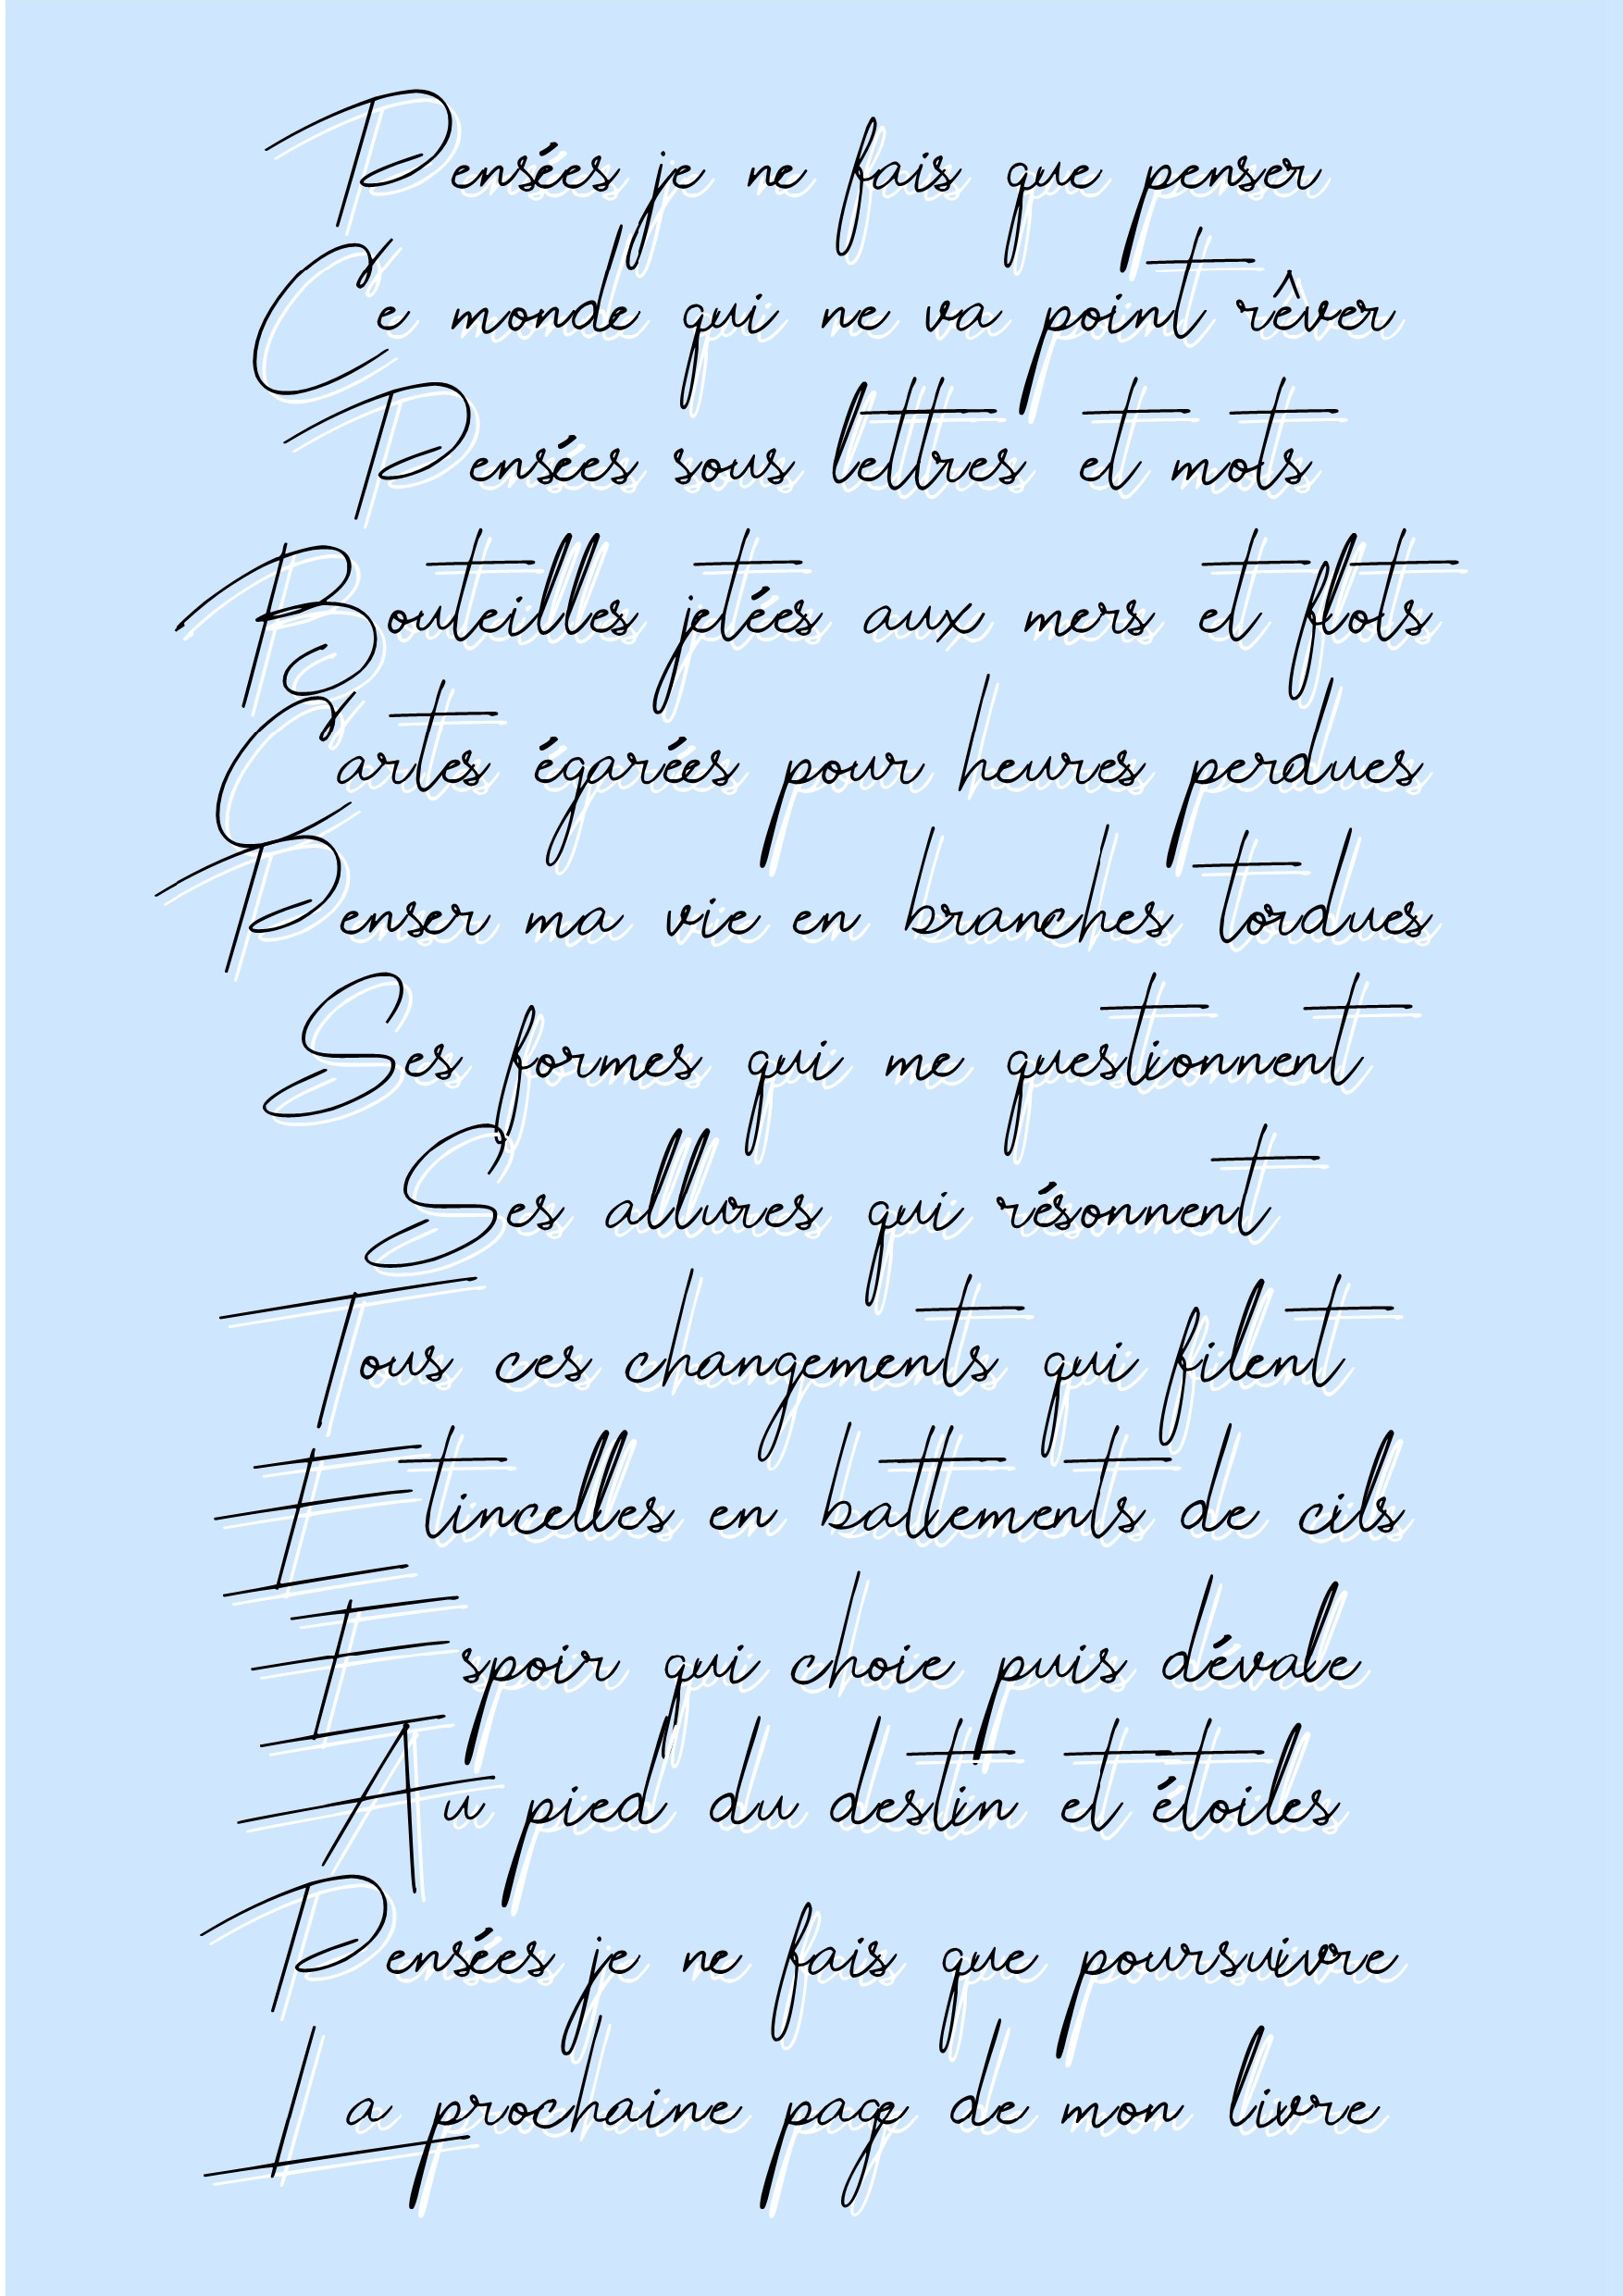 Pensées je ne fais que penser
Ce monde qui ne va point rêver
Pensées sous lettres et mots
Bouteilles jetées aux mers et flots
Cartes égarées pour heures perdues
Penser ma vie en branches tordues
Ses formes qui me questionnent
Ses allures qui résonnent
Tous ces changements qui filent
Etincelles en battements de cils
Espoir qui choie puis dévale
Au pied du destin et étoiles
Pensées je ne fais que poursuivre
La prochaine page de mon livre